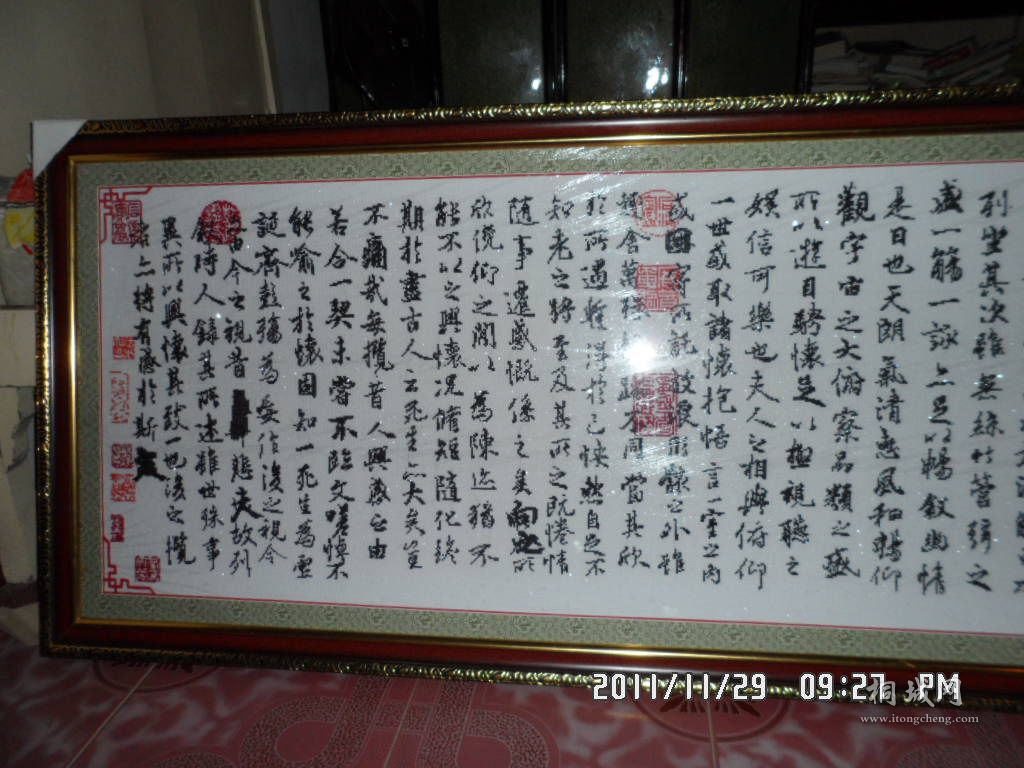 列坐其次雖無絲竹管弦之
盛一觴一詠亦足以暢敘幽情
是日也天朗氣清惠風和暢仰
觀宇宙之大俯察品類之盛
所以遊目騁懷足以極視聽之
娛信可樂也夫人之相與俯仰
一世或取諸懷抱悟言一室之內
或因寄所託放浪形骸之外雖
趣舍萬殊躁不同當其欣
於所遇暫得於己怏然自足不
知老之將至及其所之既惓情
隨事遷感慨係之矣向之所
欣俛仰之閒以為陳迹猶不
能不以之興懷況脩短隨化終
期於盡古人云死生亦大矣豈
不痛哉每攬昔人興感之由
若合一契未嘗不臨文嗟悼不
能喻之於懷固知一死生為虛
誕齊彭殤為妄作後之視今
亦由今之視昔悲夫故列
敘時人錄其所述雖世殊事
異所以興懷其致一也後之攬
者亦將有感於斯文
2011/11/29 09:27 PM
桐城网
www.itongcheng.com